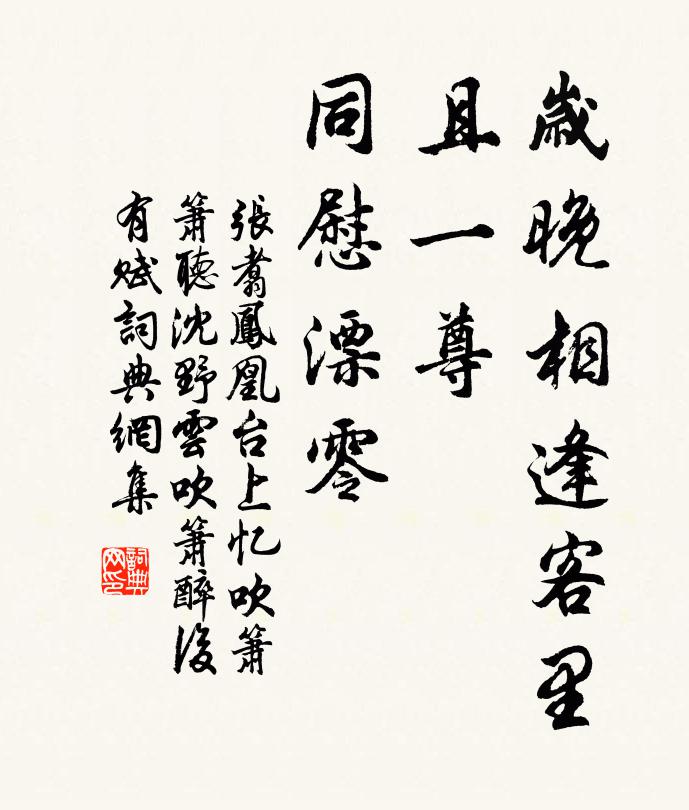 歲晚相逢客里
且一尊
同慰漂零
張翥鳳凰台上忆吹簫
簫聽沈野雲吹簫醉後
有賦詞典網集
詞典
网印